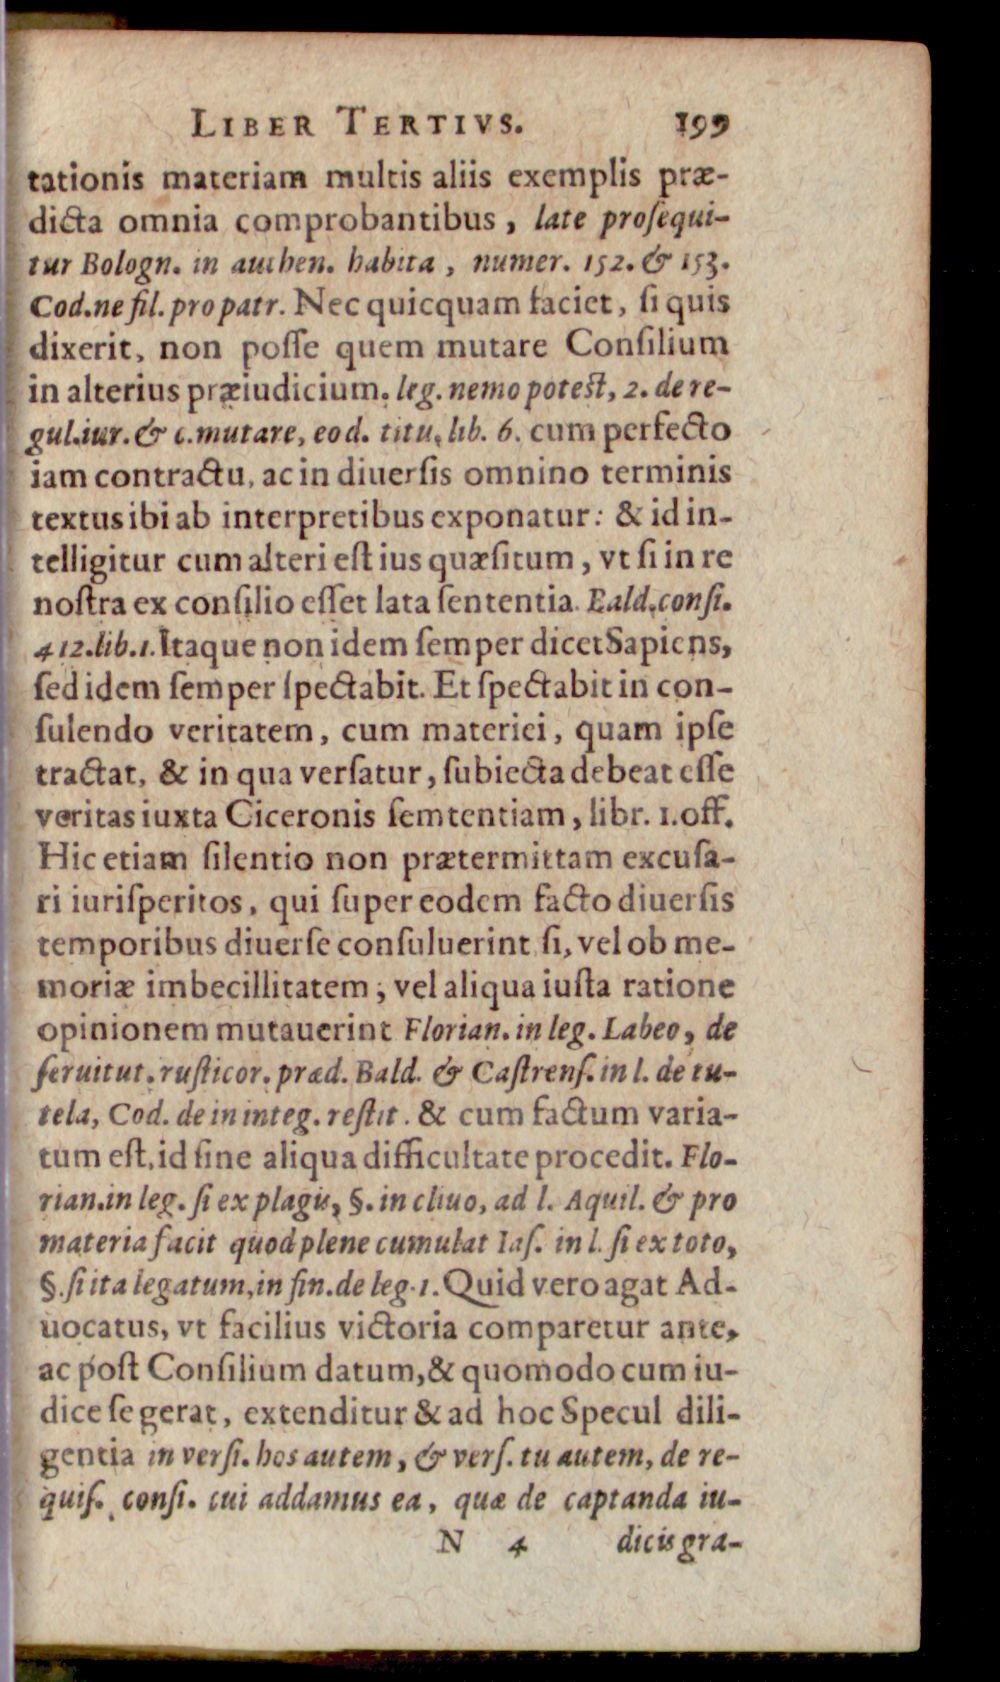 LIBER TERTIVS. 199
tationis materiam multis aliis exemplis præ-
dicta omnia comprobantibus, late proſequi-
tur Bologn. in authen. habita, numer. 152. & 153.
Cod. ne fil. pro patr. Nec quicquam faciet, ſi quis
dixerit, non poſſe quem mutare Conſilium
in alterius præiudicium. leg. nemo poteſt, 2. de re-
gul. iur. & c. mutare, eod. titu, lib. 6. cum perfecto
iam contractu, ac in diuerſis omnino terminis
textus ibi ab interpretibus exponatur: & id in-
telligitur cum alteri eſt ius quæſitum, vt ſi in re
noſtra ex conſilio eſſet lata ſententia. Bald. conſi.
412. lib. 1. Itaque non idem ſemper dicet Sapiens,
ſed idem ſemper ſpectabit. Et ſpectabit in con-
ſulendo veritatem, cum materiei, quam ipſe
tractat, & in qua verſatur, ſubiecta debeat eſſe
veritas iuxta Ciceronis ſemtentiam, libr. 1. off.
Hic etiam ſilentio non prætermittam excuſa-
ri iuriſperitos, qui ſuper eodem facto diuerſis
temporibus diuerſe conſuluerint ſi, vel ob me-
moriæ imbecillitatem, vel aliqua iuſta ratione
opinionem mutauerint Florian. in leg. Labeo, de
ſeruitut. ruſticor. præd. Bald. & Caſtrenſ. in l. de tu-
tela, Cod. de in integ. reſtit. & cum factum varia-
tum eſt, id ſine aliqua difficultate procedit. Flo-
rian. in leg. ſi ex plagis, §. in cliuo, ad l. Aquil. & pro
materia facit quod plene cumulat Iaſ. in l. ſi ex toto,
§. ſi ita legatum, in fin. de leg. 1. Quid vero agat Ad-
uocatus, vt facilius victoria comparetur ante,
ac poſt Conſilium datum, & quomodo cum iu-
dice ſe gerat, extenditur & ad hoc Specul dili-
gentia in verſi. hos autem, & verſ. tu autem, de re-
quiſ. conſi. cui addamus ea, quæ de captanda iu-
N 4 dicis gra-